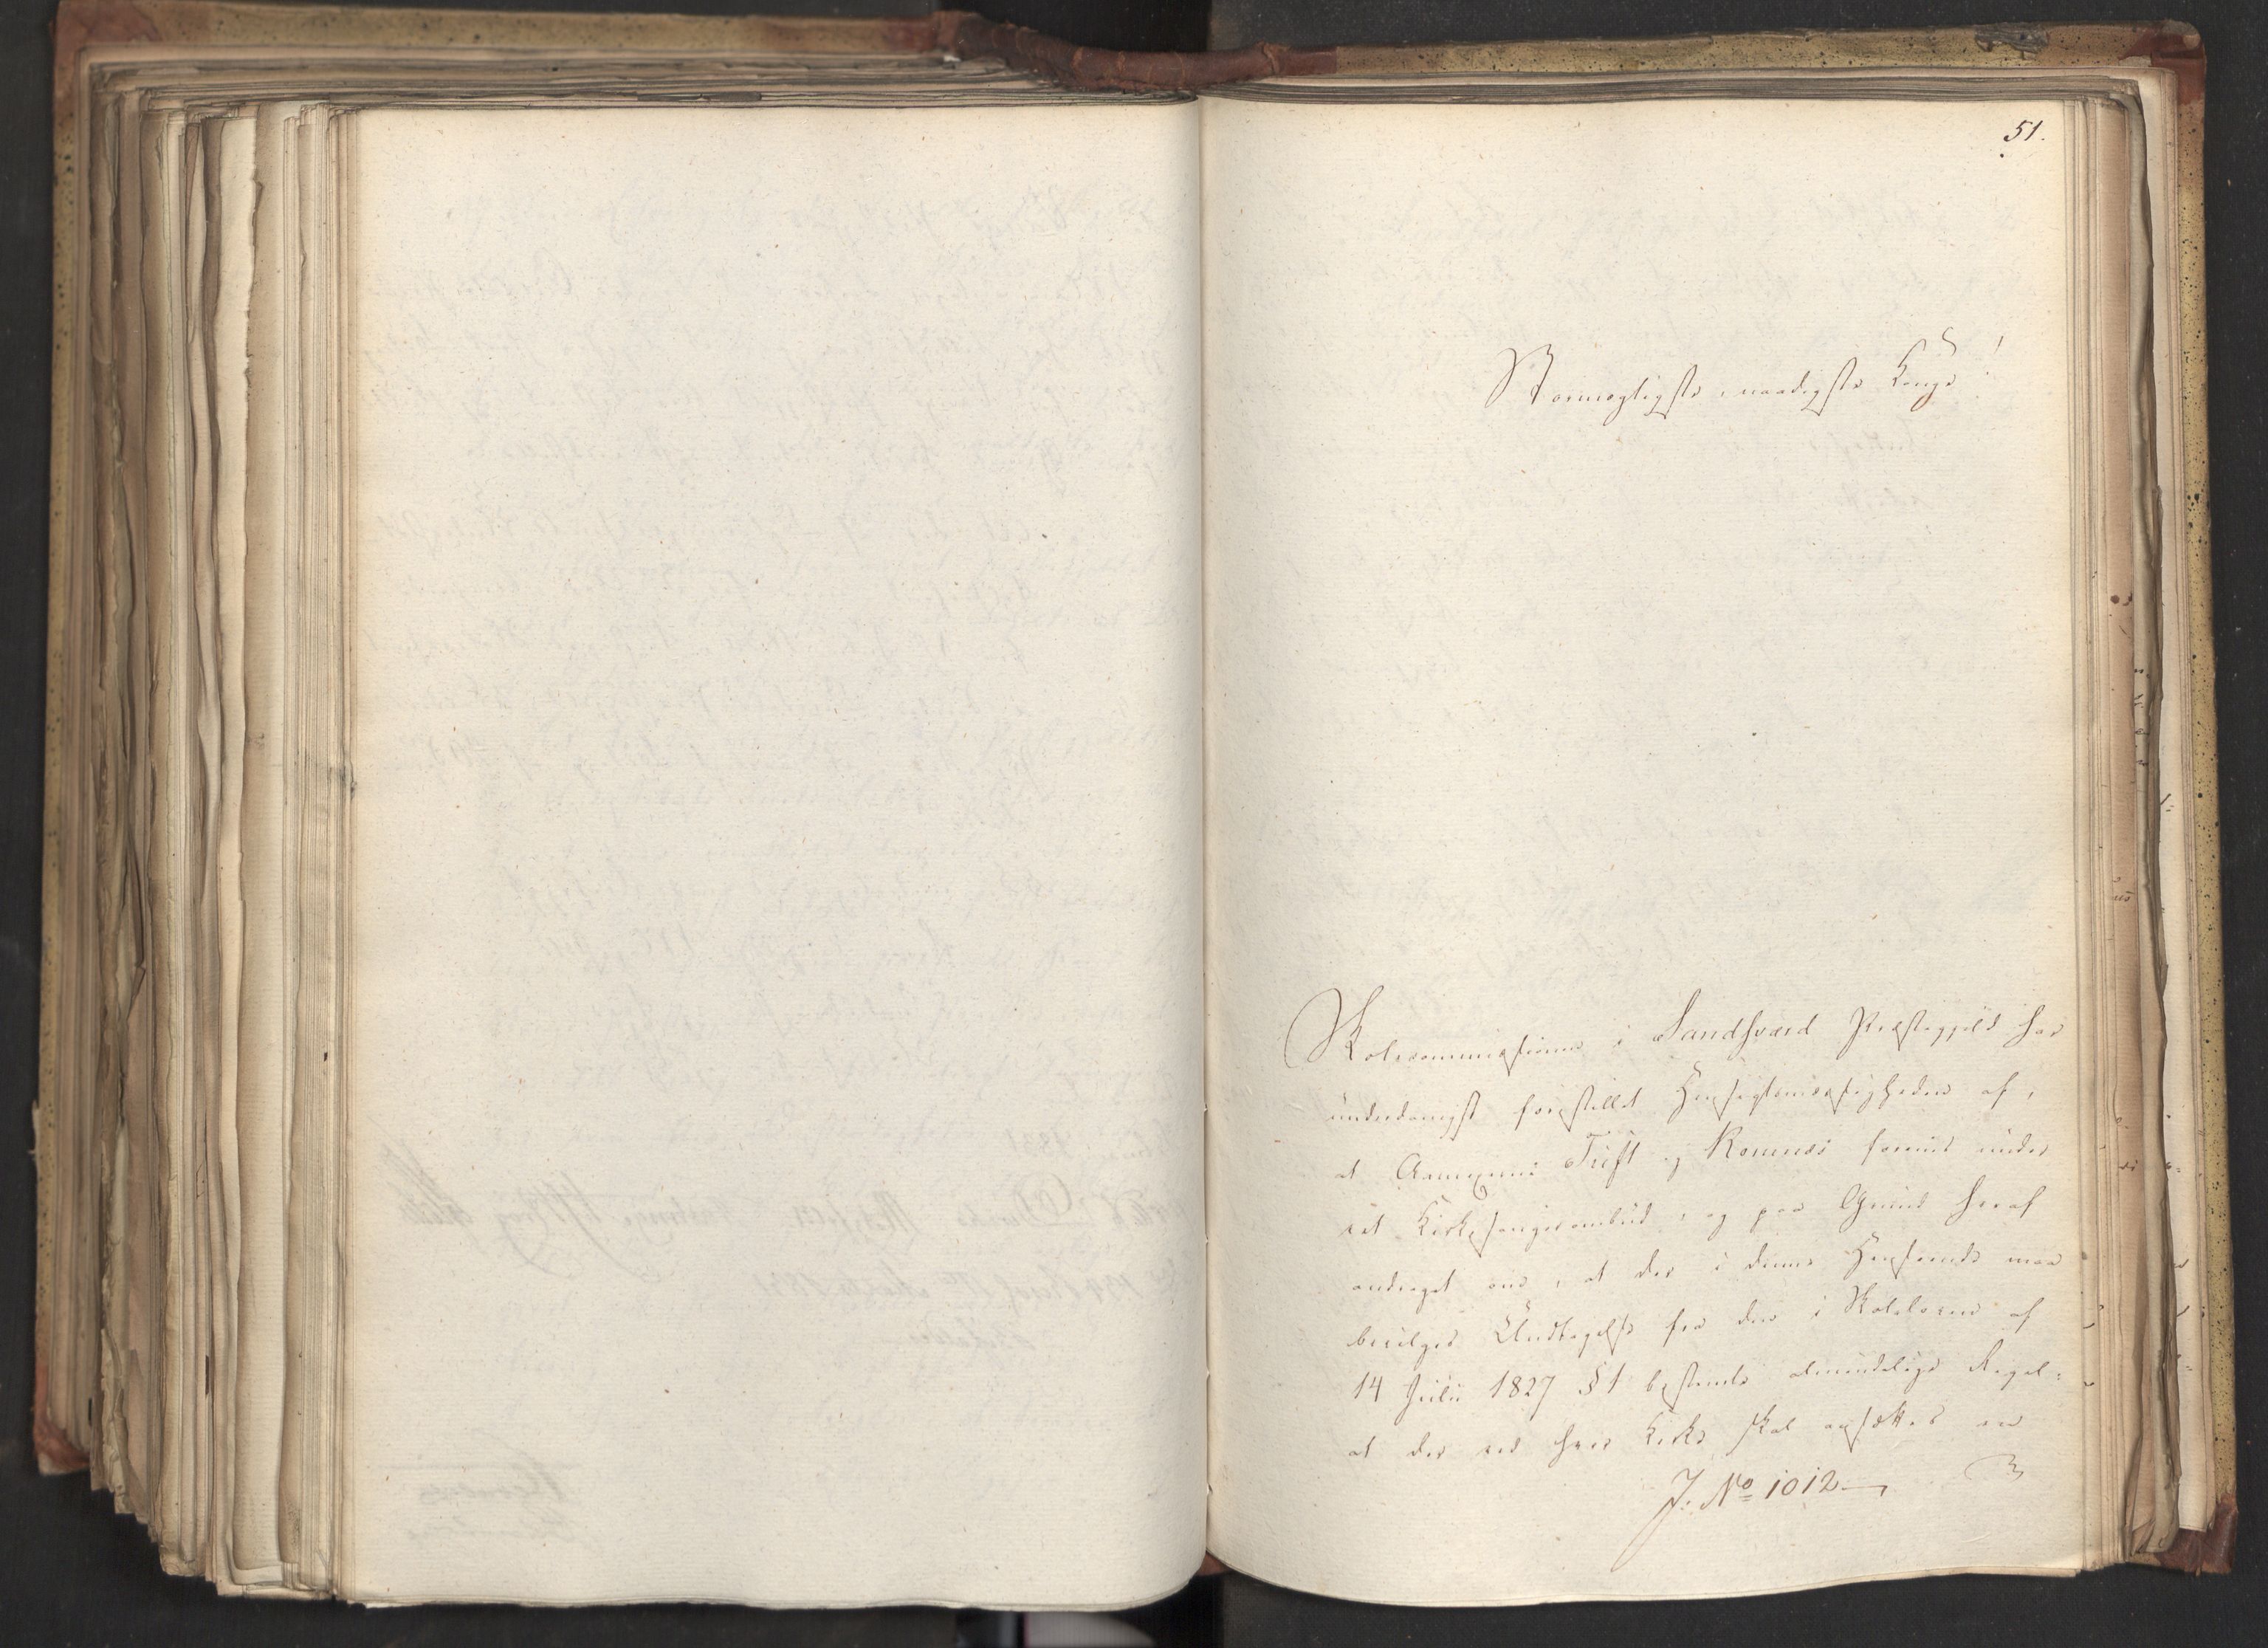 51.
Stormægtigste, naadigste Konge!
Skolecommissionen i Sandsværd Præstegjeld har
underdanigst forestillet Hensigtsmæssigheden af,
at Annexerne Tuft og Komnæs forenes under
eet Kirkesangerombud, og paa Grund heraf
andraget om, at der i denne Henseende maa
bevilges Undtagelse fra den i Skoleloven af
14 Julii 1827 § 1 bestemte almindelige Regel:
at der ved hver Kirke skal ansættes en
J. No 1012